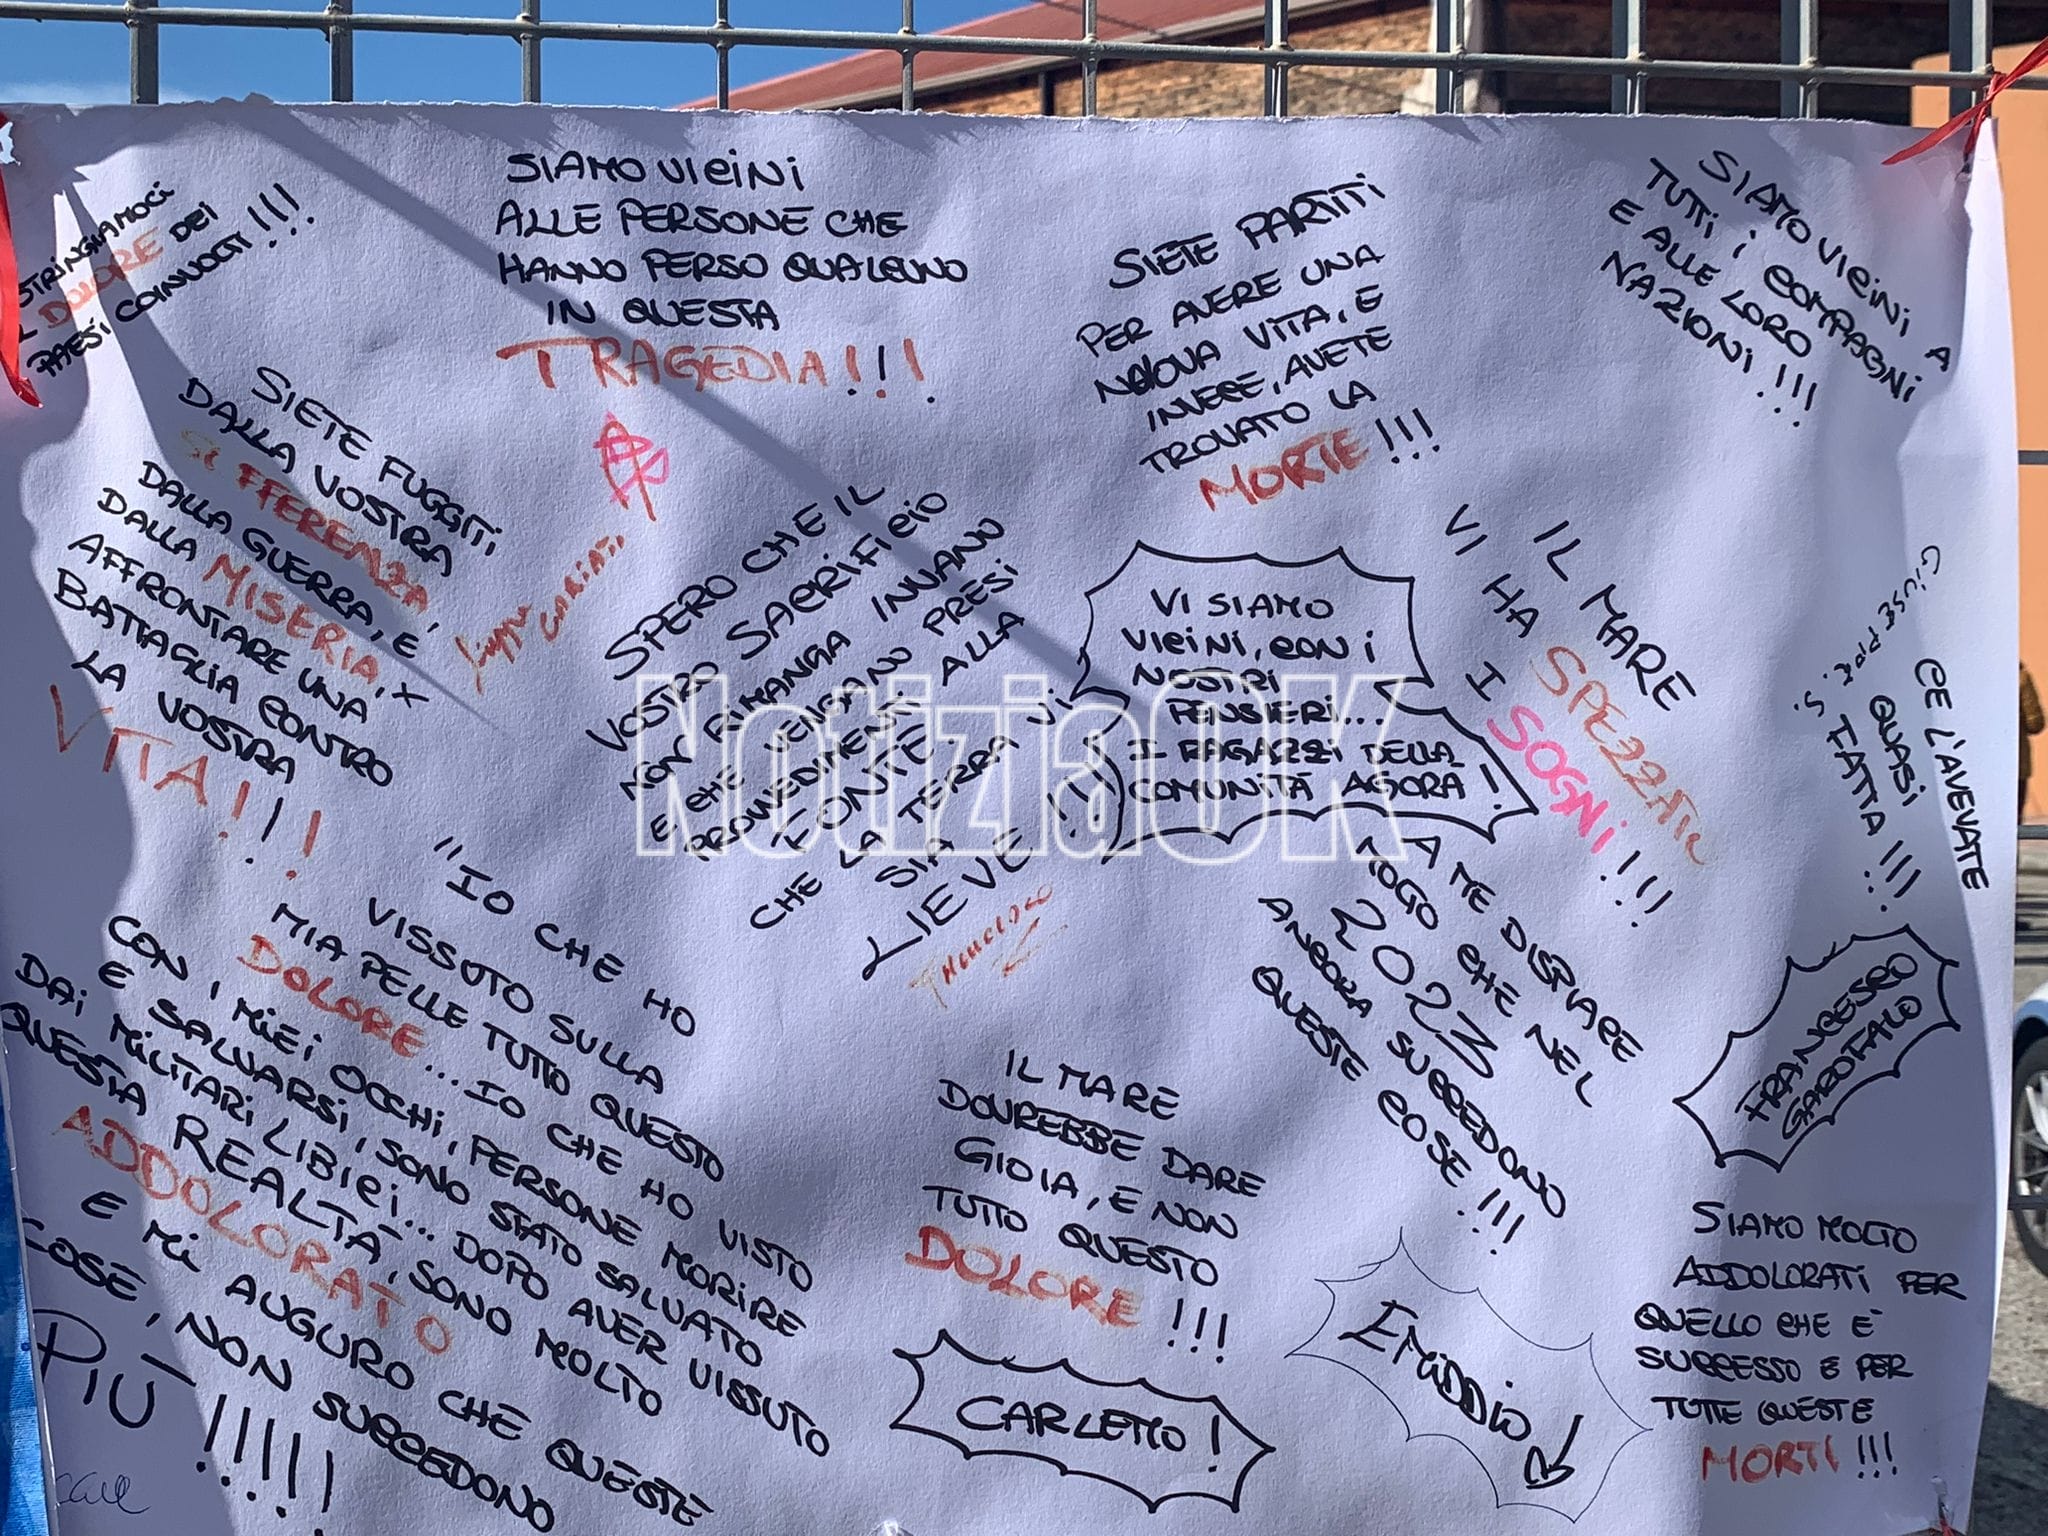 STRINGIAMOCI
DOLORE DEI
PAESI COINVOLTI !!!
SIAMO VICINI
ALLE PERSONE CHE
HANNO PERSO QUALCUNO
IN QUESTA
TRAGEDIA!!!
SIETE PARTITI
PER AVERE UNA
NUOVA VITA, E
INVECE, AVETE
TROVATO LA
MORTE!!!
SIAMO VICINI A
TUTTI I COMPAGNI
E ALLE LORO
NAZIONI!!!
SIETE FUGGITI
DALLA VOSTRA
SIFFERENZA,
DALLA GUERRA, E
DALLA MISERIA, X
AFFRONTARE UNA
BATTAGLIA CONTRO
LA VOSTRA
VITA!!!
SPERO CHE IL
VOSTRO SACRIFICIO
NON RIMANGA INVANO
E CHE VENGANO PRESI
PROVVEDIMENTI ALLA
FONTE.
CHE LA TERRA VI
SIA
LIEVE!!!
VI SIAMO
VICINI, CON I
NOSTRI
PENSIERI...
I RAGAZZI DELLA
COMUNITÀ AGORÀ!
IL MARE
VI HA SPEZZATO
I SOGNI!!!
GIUSEPPE
CE L'AVEVATE
QUASI
FATTA!!!
"IO CHE HO
VISSUTO SULLA
MIA PELLE TUTTO QUESTO
DOLORE... IO CHE HO VISTO
CON I MIEI OCCHI, PERSONE MORIRE
E SALVARSI, SONO STATO SALVATO
DAI MILITARI LIBICI... DOPO AVER VISSUTO
QUESTA REALTÀ, SONO MOLTO
ADDOLORATO
E MI AUGURO CHE QUESTE
COSE, NON SUCCEDONO
PIÙ !!!!!
A ME DISPIARE
MOGO CHE NEL
2023
ANCORA SUCCEDONO
QUESTE COSE!!!
FRANCESCO
GAROFALO
IL MARE
DOVREBBE DARE
GIOIA, E NON
TUTTO QUESTO
DOLORE!!!
CARLETTO!
EMIDDIO
SIAMO MOLTO
ADDOLORATI PER
QUELLO CHE È
SUCCESSO E PER
TUTTE QUESTE
MORTI!!!
NotiziaOK